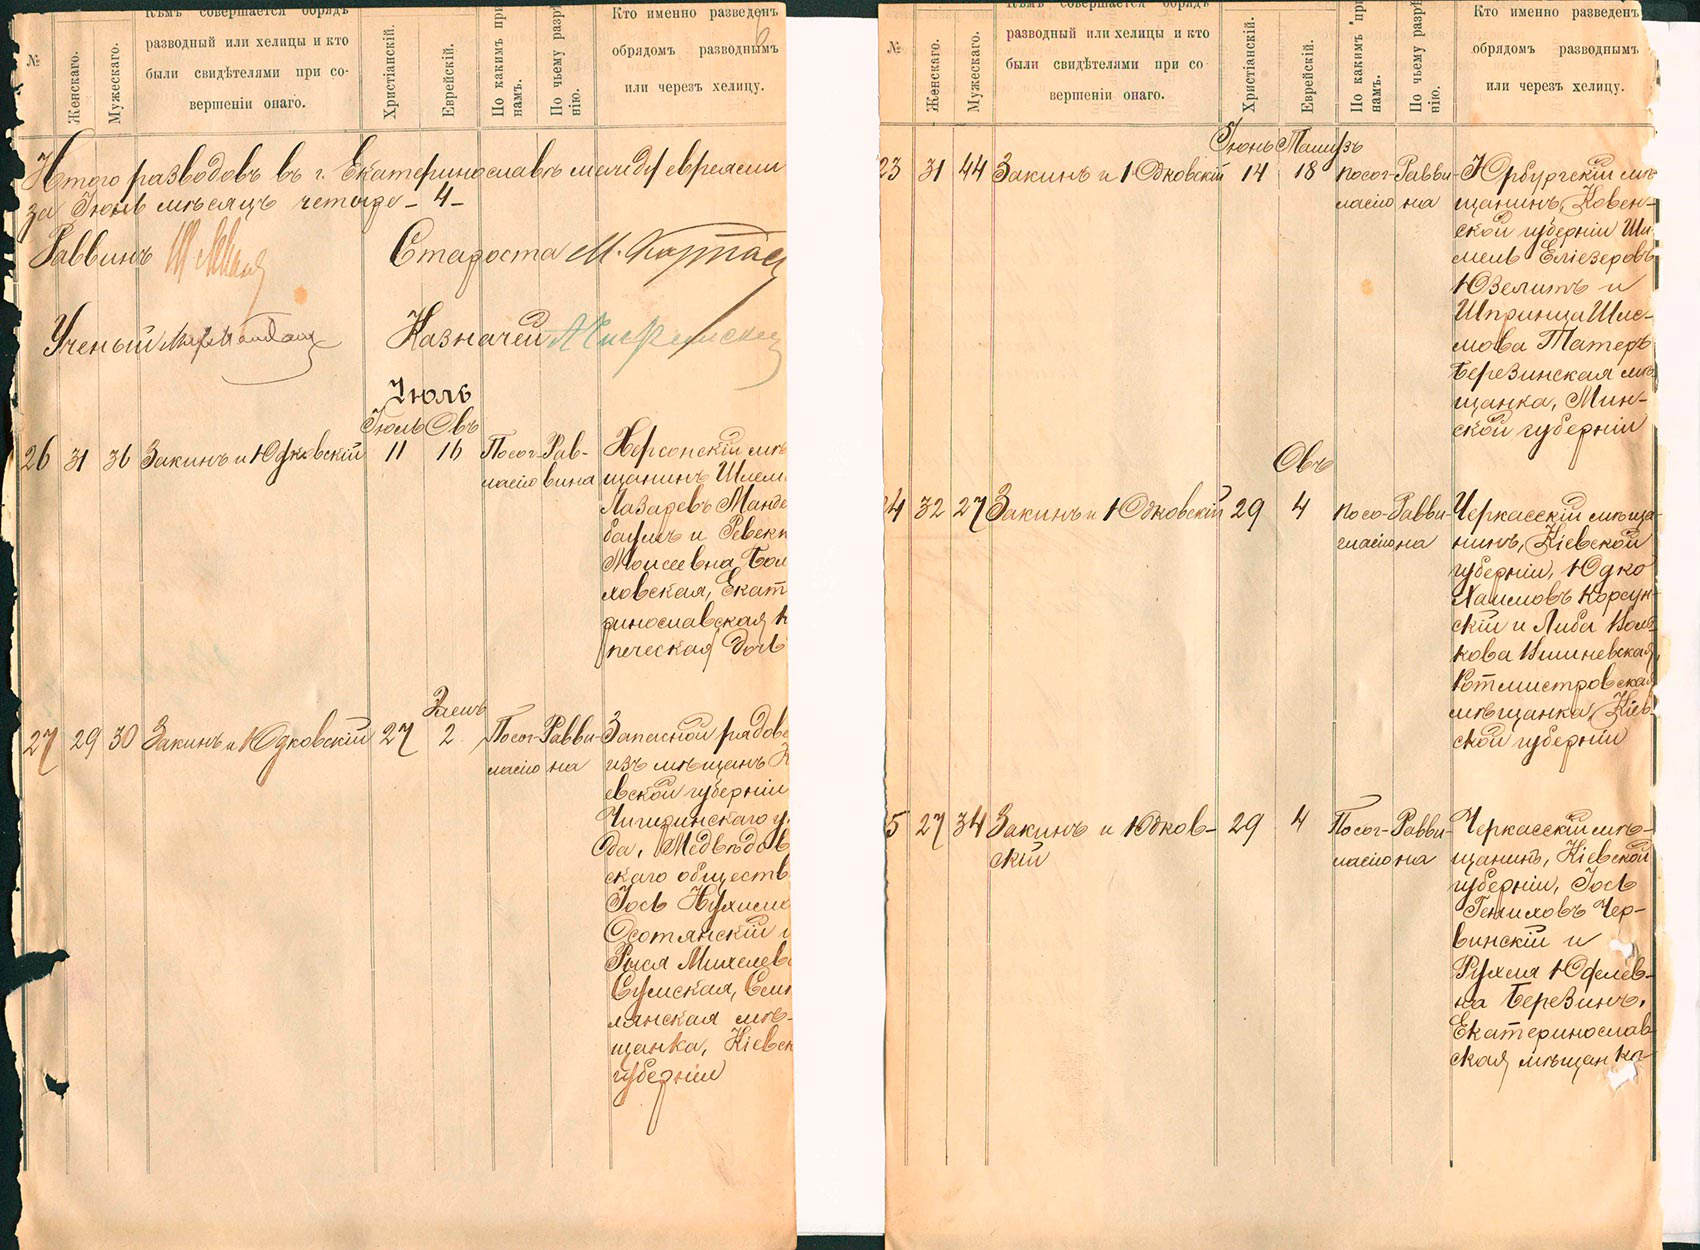 №
Женскаго.
Мужескаго.
Кѣмъ совершается обрядъ
разводный или хелицы и кто
были свидѣтелями при со-
вершеніи онаго.
Христіанскій.
Еврейскій.
По какимъ при
намъ.
По чьему разрѣ
нію.
Кто именно разведенъ
обрядомъ разводнымъ
или черезъ хелицу.
Итого разводовъ въ г. Екатеринославѣ между евреями
за Іюнь мѣсяцъ четыре - 4 -
Раввинъ
Староста М.
Ученый
Казначей
Іюль
Іюль Овъ
26 31 36 Закинъ и Юдковскій 11 16 Посог- Рав-
ласію вина
Херсонскій мѣ
щанинъ Шлем
Лазаревъ Манде
баумъ и Ревек
Моисеевна Бог
ловская, Екат
ринославская к
печеская дочь
Элелъ
27 29 30 Закинъ и Юдковскій 27 2 Посог- Равви-
ласію на
Запасной рядово
изъ мѣщанъ К
евской губерніи
Чигиринскаго у
да, Медвѣдов
скаго обществ
Іось Нухимо
Осотянскій и
Рыся Михелев
Сумская, Смѣ
лянская мѣ-
щанка, Кіевск
губерніи
№
Женскаго.
Мужескаго.
Кѣмъ совершается обрядъ
разводный или хелицы и кто
были свидѣтелями при со
вершеніи онаго.
Христіанскій.
Еврейскій.
По какимъ при
намъ.
По чьему разрѣ
нію.
Кто именно разведенъ
обрядомъ разводнымъ
или черезъ хелицу.
Іюнь Тамузъ
23 31 44 Закинъ и Юдковскій 14 18 посог- Равви-
ласію на
Юрбургскій мѣ
щанинъ, Ковен-
ской губерніи Ши
мель Еліезеровъ
Юзелитъ и
Шпринца Шле-
мова Татеръ
Березинская мѣ
щанка, Мин-
ской губерніи
Овъ
24 32 27 Закинъ и Юдковскій 29 4 посо- Равви-
гласію на
Черкасскій мѣща-
нинъ, Кіевской
губерніи, Юдко
Хаимовъ Корсун-
скій и Либа Воль
кова Вишневская,
Ротмистровская
мѣщанка, Кіев-
ской губерніи
5 27 34 Закинъ и Юдков- 29 4 Посог- Равви-
скій ласію на
Черкасскій мѣ-
щанинъ, Кіевской
губерніи, Іось
Геныховъ Чер-
винскій и
Рухля Юделев-
на Березинъ,
Екатеринослав-
ская мѣщанка